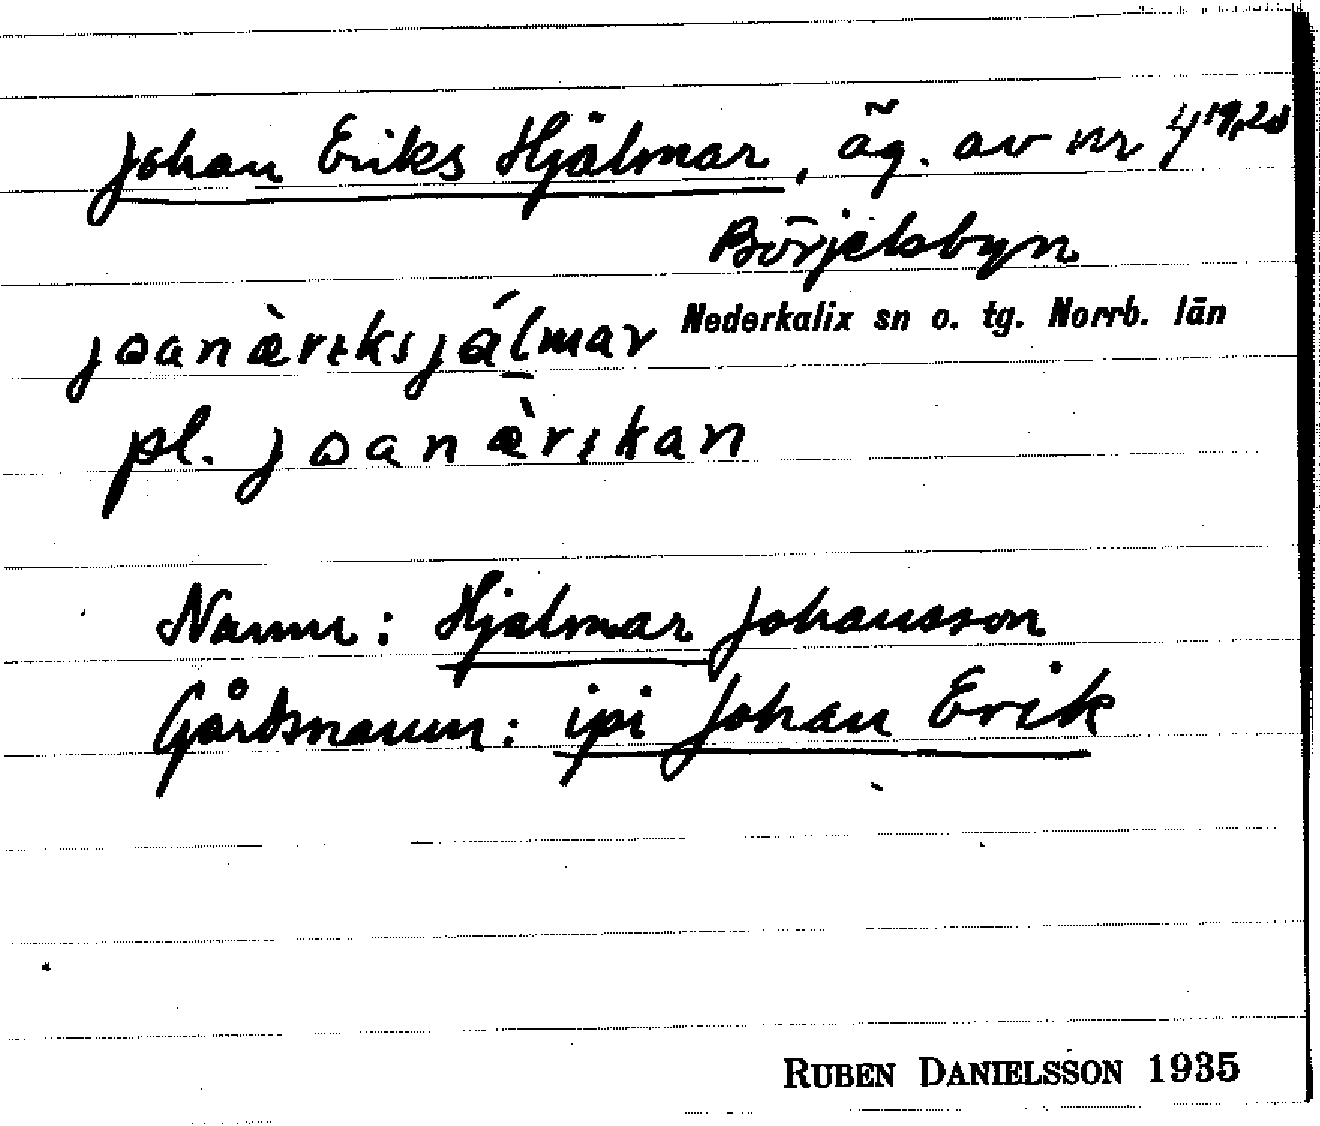 Johan Eriks Hjälmar, äg. av nr 4 19,20
Börjelsbyn
Nederkalix sn o. tg. Norrb. län
jɷanæ̀rɩksjálmar
pl. jɷanæ̀rɩkan
Namn: Hjalmar Johansson
Gårdsnamn: ipi Johan Erik
RUBEN DANIELSSON 1935